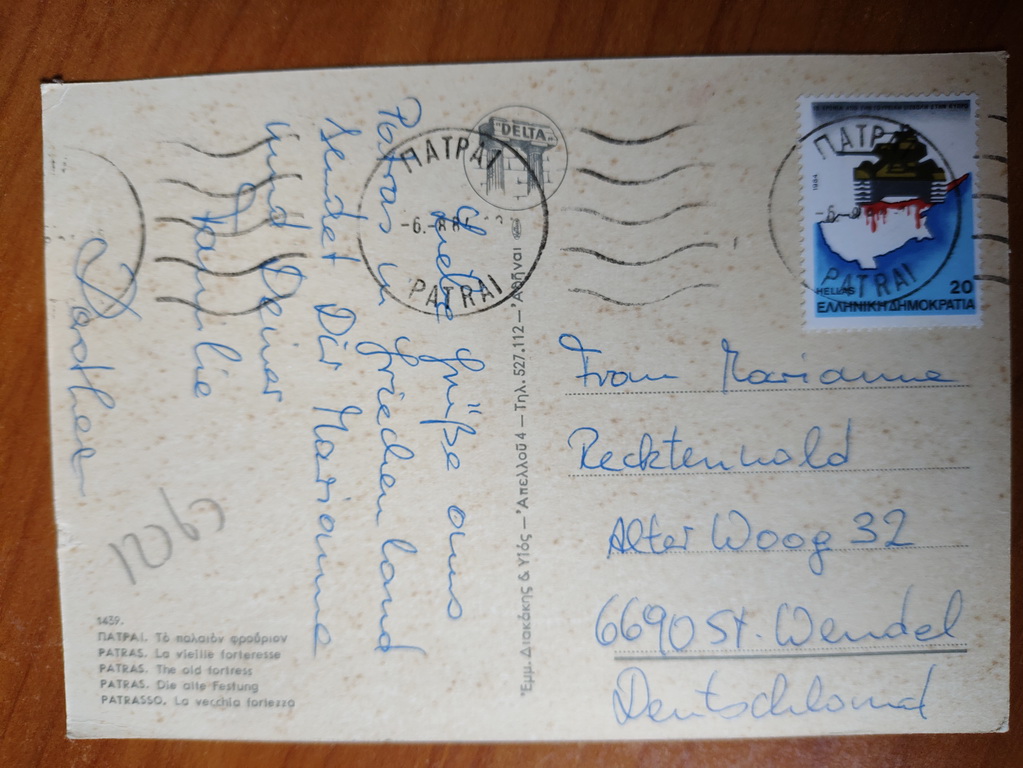 Liebe Grüße aus
Patras in Griechenland
sendet Dir Marianne
und Deiner
Familie
Dorothea
DELTA
ΠΑΤΡΑΙ
-6.-8 8
PATRAI
Ἐμμ. Διακάκης & Υἱός — Ἀπελλοῦ 4 — Τηλ. 527.112 — Ἀθῆναι
ΠΑΤΡΑΙ
PATRAI
1984
HELLAS 20
ΕΛΛΗΝΙΚΗ ΔΗΜΟΚΡΑΤΙΑ
Frau Marianne
Recktenwald
Alter Woog 32
6690 St. Wendel
Deutschland
1439.
ΠΑΤΡΑΙ. Τὸ παλαιὸν φρούριον
PATRAS. La vieille forteresse
PATRAS. The old fortress
PATRAS. Die alte Festung
PATRASSO. La vecchia fortezza